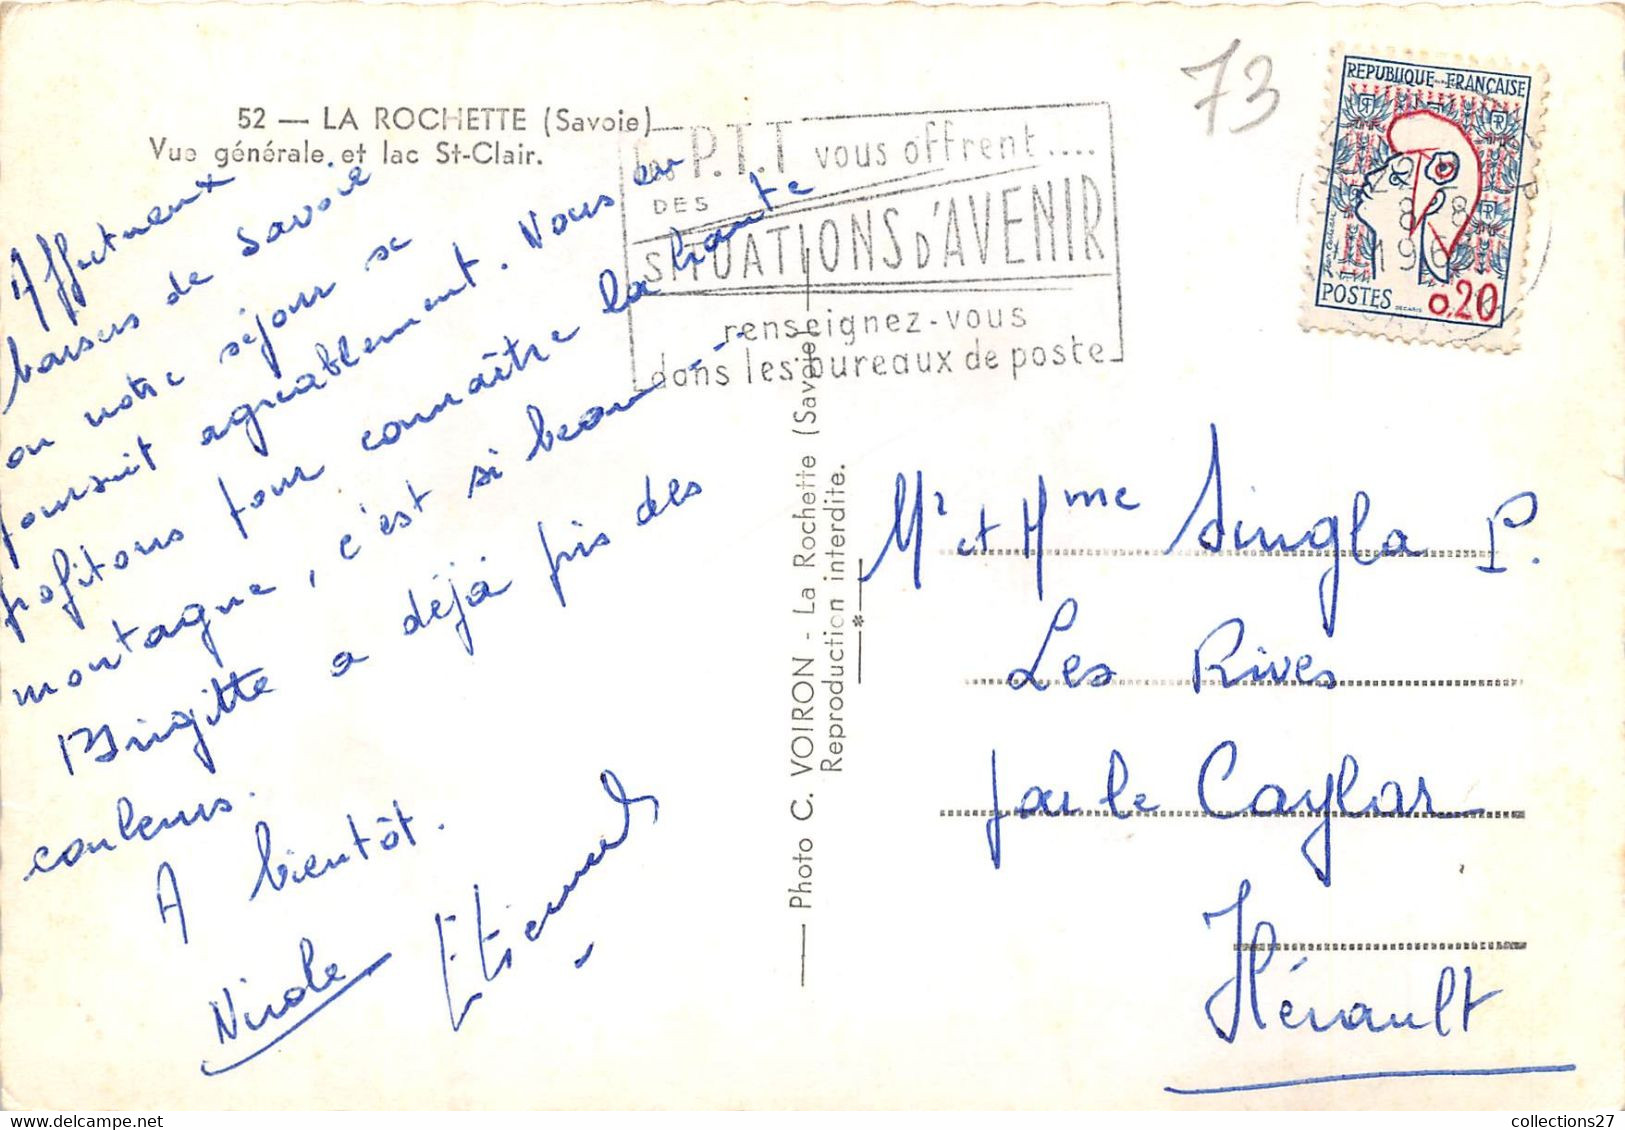 52 — LA ROCHETTE (Savoie)
Vue générale et lac St-Clair.
73
Les P.T.T vous offrent....
DES
SITUATIONS D'AVENIR
renseignez-vous
dans les bureaux de poste
REPUBLIQUE FRANÇAISE
POSTES
0,20
Affectueux
baisers de Savoie
où notre séjour se
poursuit agréablement. Nous en
profitons pour connaître la haute
montagne, c'est si beau - -
Brigitte a déjà pris des
couleurs.
A bientôt.
Nicole
Photo C. VOIRON - La Rochette (Savoie)
Reproduction interdite.
Mr et Mme Singla P.
Les Rives
par le Caylar
Hérault
collections27